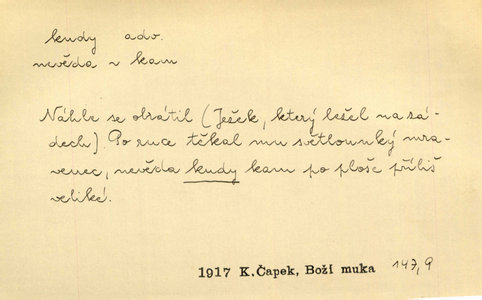 kudy adv.
nevěda ~ kam
Náhle se obrátil (Ježek, který ležel na zá-
dech). Po ruce těkal mu světlounký mra-
venec, nevěda kudy kam po ploše příliš
veliké.
1917 K. Čapek, Boží muka 147,9